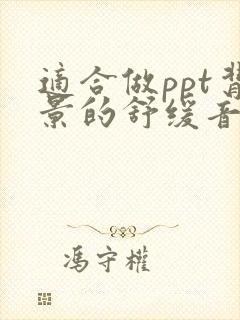 適合做ppt背
景的舒缓音
馮守權